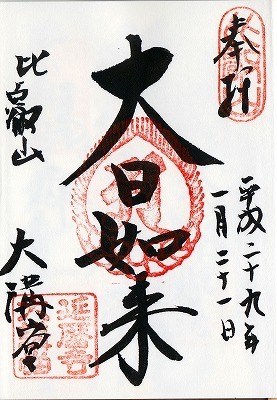 奉拝
平成二十九年
一月二十一日
大日如来
比叡山
大講堂